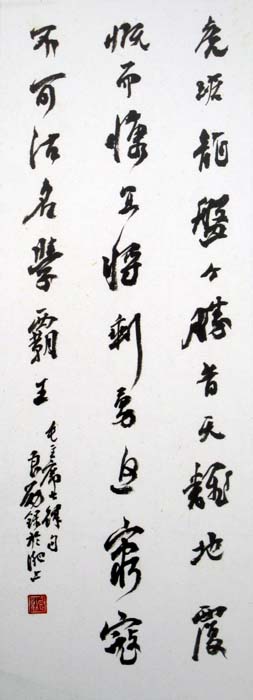 虎踞龍盤今勝昔天翻地覆
慨而慷宜將剩勇追窮寇
不可沽名學霸王
毛主席七律句
錄於上